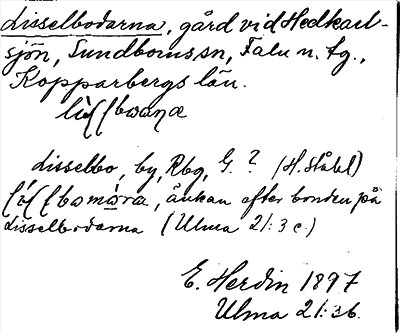 Lisselbodarna, gård vid Hedkarl-
sjön, Sundborns sn, Falu n. tg.,
Kopparbergs län.
Lisselbo, by, Rbg, G. ? (H. Ståhl)
änkan efter bonden på
Lisselbodarna (Ulma 21:3 c.)
E. Herdin 1897
Ulma 21:36.